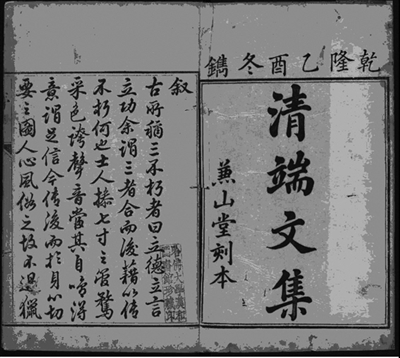 乾隆乙酉冬鐫
清端文集
兼山堂刻本
叙
古所稱三不朽者曰立德立言
立功余謂三者合而後藉以傳
不朽何也士人搦七寸之管騖
采色誇聲音當其自喻得
意謂足信今傳後而於身心切
要之國人心風俗之故不過獵